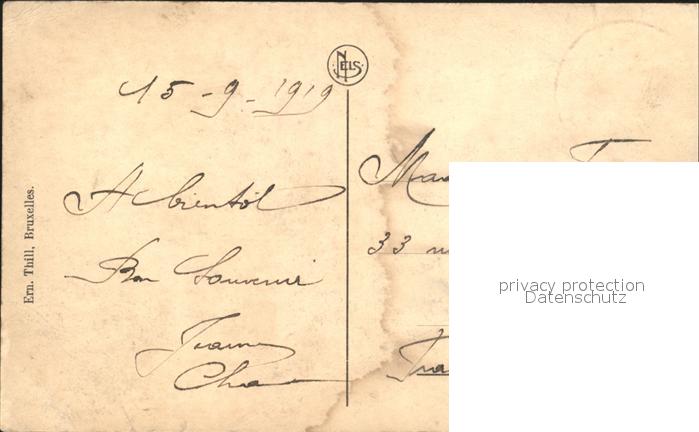 NELS
15-9-1919
A bientôt
Bon Souvenir
Jeanne
33
Ern. Thill, Bruxelles.
privacy protection
Datenschutz